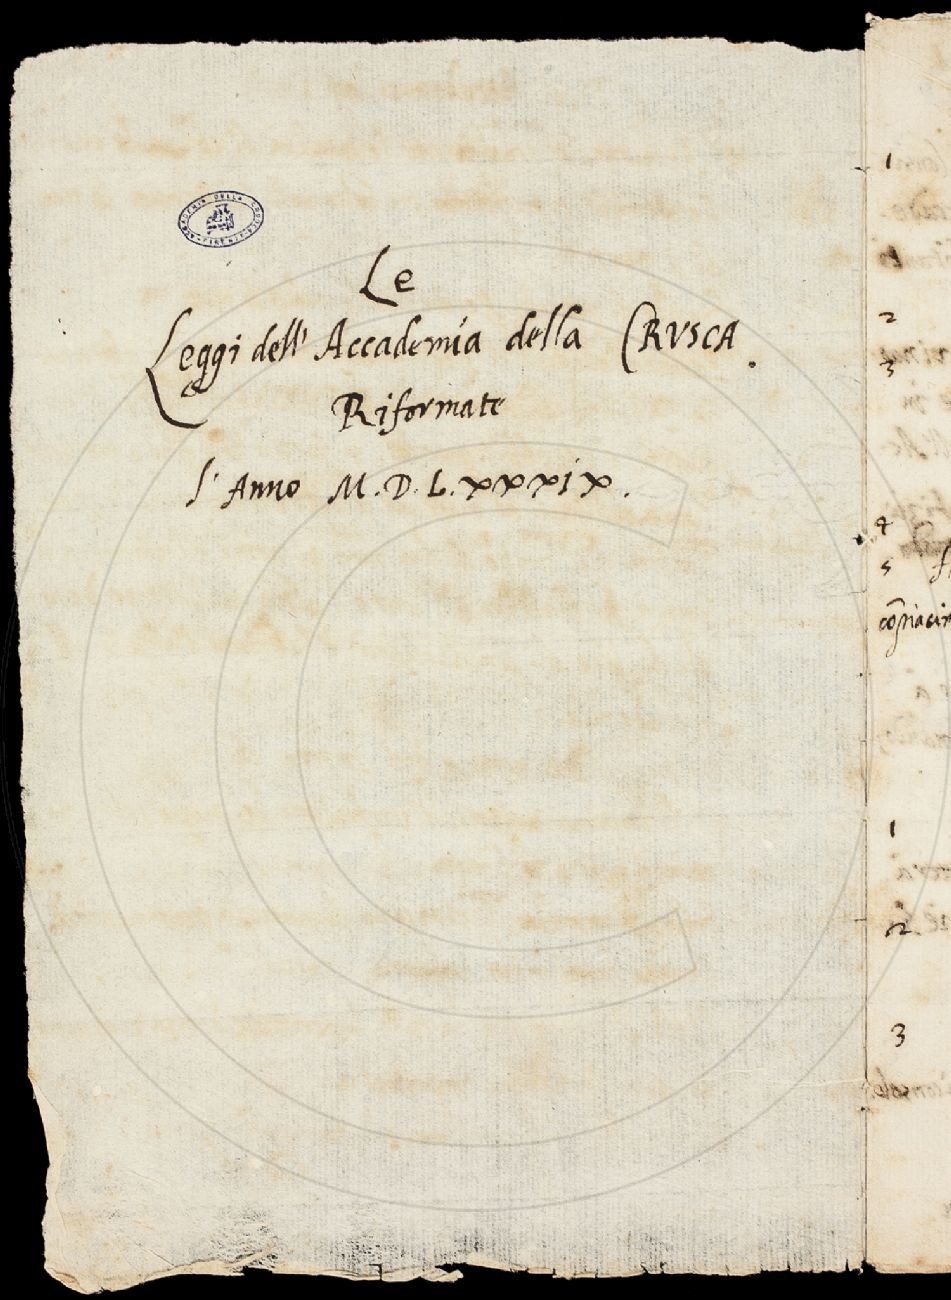 ACCADEMIA DELLA CRUSCA
Le
Leggi dell' Accademia della CRVSCA.
Riformate
l' Anno M.D.L.xxxix.
1
2
3
4
5
1
2
3